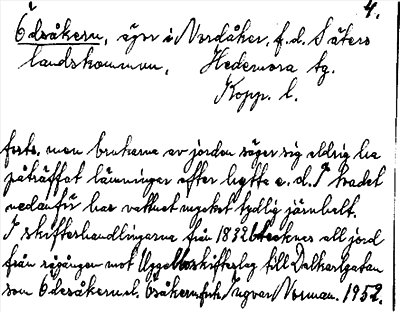 4.
Ödesåkern, äger i Nordåker, f. d. Säters
landskommun, Hedemora tg.
Kopp. l.
forts, men brukarna av jorden säger sig aldrig ha
påträffat lämningar efter hytte e. d. I badet
nedanför har vattnet mycket tydlig järnhalt.
I skifteshandlingarna från 1832 tecknes all jord
från rågången mot Uggelboskifteslag till Dalkarlsgatan
som Ödesåkern. Ingvar Norman. 1952.